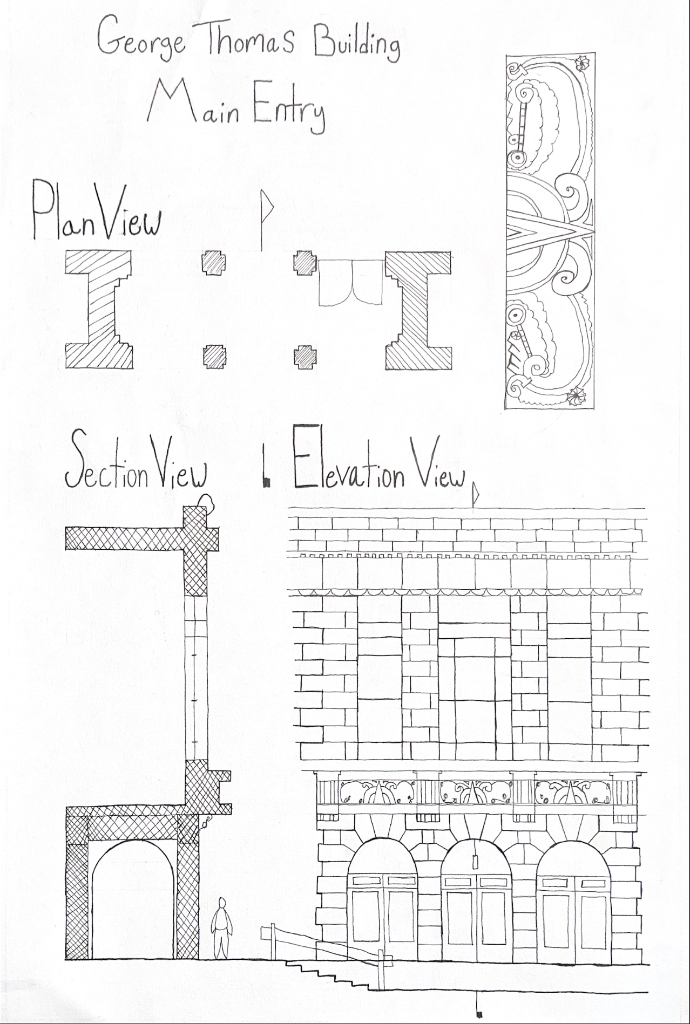 George Thomas Building
Main Entry
Plan View
Section View
Elevation View